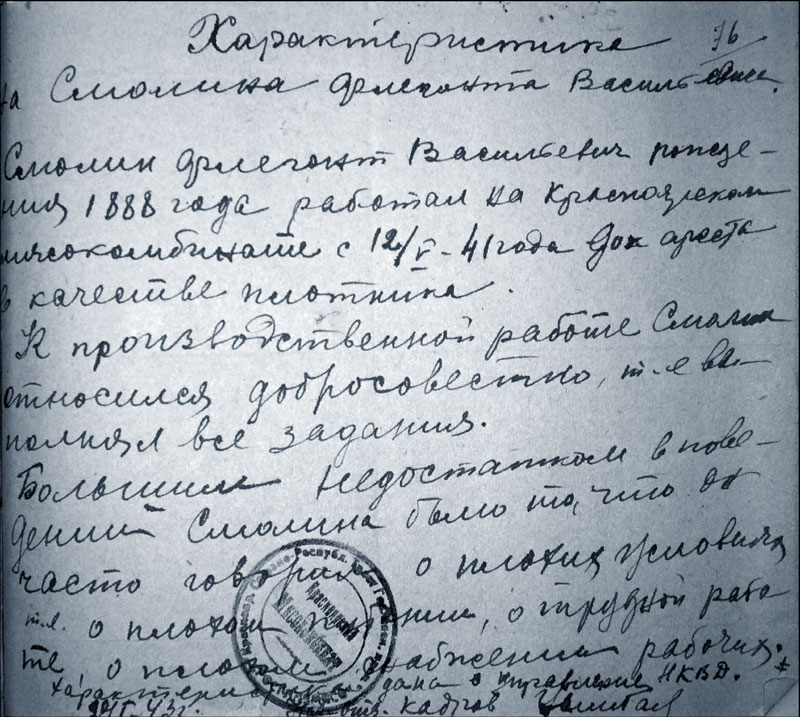 Характеристика 76
на Смолина Флегонта Васильевича.
Смолин Флегонт Васильевич рожде-
ния 1888 года работал на Красноярском
мясокомбинате с 12/V-41 года до ареста
в качестве плотника.
К производственной работе Смолин
относился добросовестно, т.е вы-
полнял все задания.
Большим недостатком в пове-
дении Смолина было то, что он
часто говорил о плохих условиях
т.е. о плохом питании, о трудной рабо
те о плохом снабжении рабочих.
Характеристика дана в управление НКВД.
43г. кадров
Красноярский
Мясокомбинат